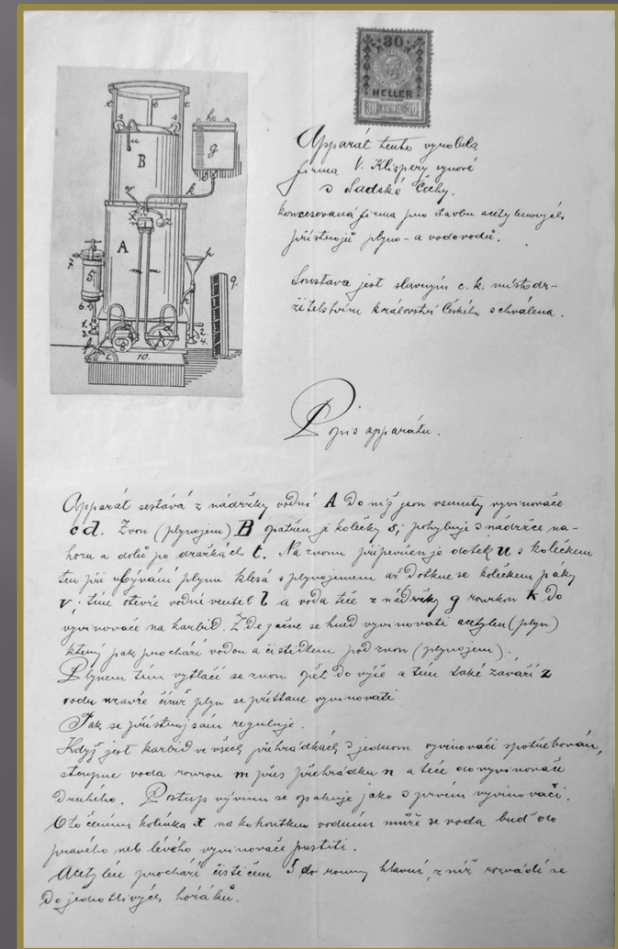 30
HELLER
30 1898 30
Apparát tento vyrobila
firma V. Klippery synové
v Sadské Čechy.
koncesovaná firma pro stavbu acetylenových
přístrojů plyno- a vodovodů.
Soustava jest slavným c. k. místodr-
žitelstvím království Českého schválena.
Popis apparátu.
Apparát sestává z nádržky vodní A do níž jsou vsunuty vyvinovače
c d. Zvon (plynojem) B opatřen je kolečky s, pohybuje v nádržce na-
horu a dolů po drážkách t. Na zvonu připevněn je dotek u s kolečkem
ten při ubývání plynu klesá s plynojemem až dotkne se kolečkem páky
v tím otevře vodní ventil l a voda teče z nádržky g rourkou k do
vyvinovače na karbid. Zde začne se hned vyvinovati acetylen (plyn)
který pak prochází vodou a čistidlem pod zvon (plynojem).
Plynem tím vytlačí se zvon opět do výše a tím také zaváží z
vodu uzavře čímž plyn se přestane vyvinovati
Tak se přístroj sám reguluje.
Když jest karbid ve všech přihrádkách v jednom vyvinovači spotřebován,
stoupne voda rourou m přes přehrádku n a teče do vyvinovače
druhého. Postup vývinu se opakuje jako v prvém vyvinovači.
Otočením kolínka x na kohoutku vodním může se voda buď do
pravého neb levého vyvinovače pustiti.
Acetylén prochází čističem 5 do roury hlavní, z níž rozvádí se
do jednotlivých hořáků.